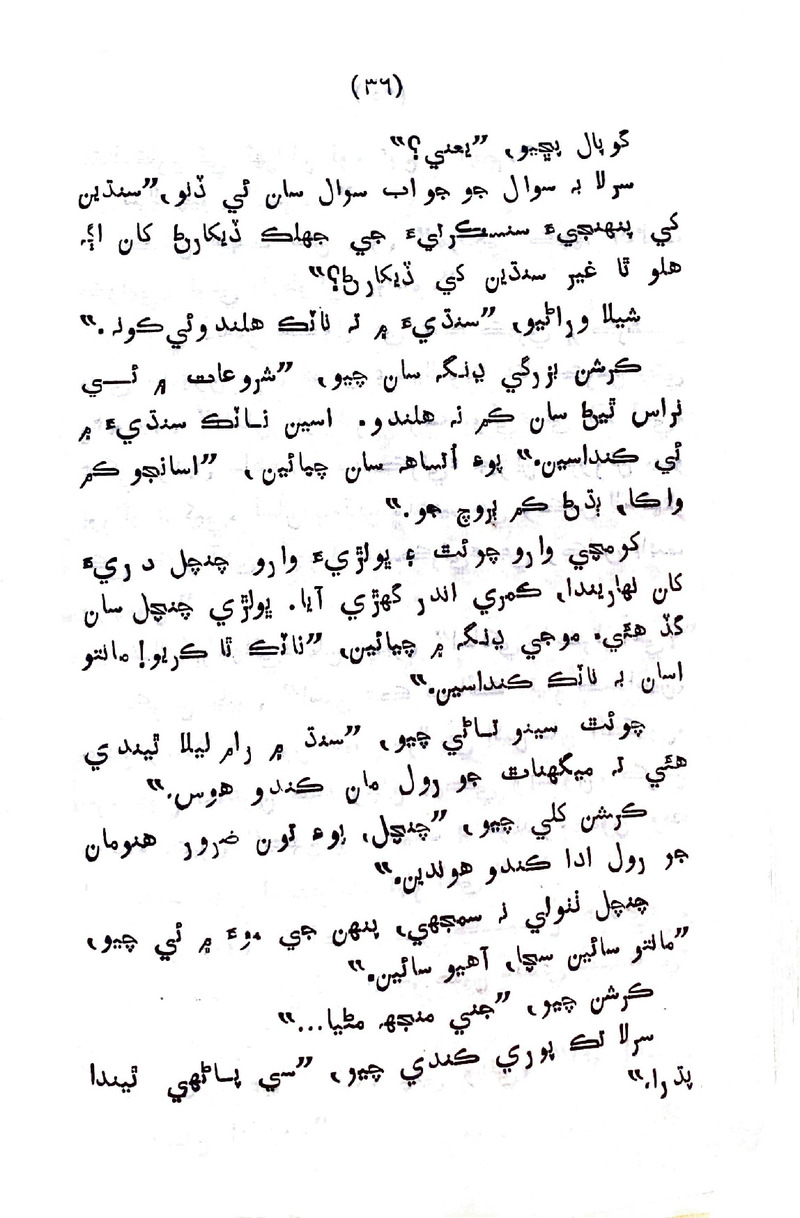 (٣٦)
گوپال پڇيو، ”يعني؟“
سرلا بہ سوال جو جواب سوال سان ئي ڏنو، ”سنڌين
کي پنھنجيءَ سنسڪرتيءَ جي جھلڪ ڏيکارڻ کان اڳ،
ھلو ٿا غير سنڌين کي ڏيکارڻ؟“
شيلا وراڻيو، ”سنڌيءَ ۾ تہ ناٽڪ ھلندوئي ڪونہ.“
ڪرشن بزرگي ڍنگہ سان چيو، ”شروعات ۾ ئي
نراس ٿيڻ سان ڪم نہ ھلندو. اسين ناٽڪ سنڌيءَ ۾
ئي ڪنداسين.“ پوءِ اُتساھہ سان چيائين، ”اسانجو ڪم
واڪا، ٻڌڻ ڪم ٻروچ جو.“
ڪومچي وارو چوئٿ ۽ ڀولڙيءَ وارو چنچل دريءَ
کان نھاريندا، ڪمري اندر گھڙي آيا. ڀولڙي چنچل سان
گڏ ھئي. موجي ڍنگہ ۾ چيائين، ”ناٽڪ ٿا ڪريو! مالتو
اسان بہ ناٽڪ ڪنداسين.“
چوئٿ سينو تاڻي چيو، ”سنڌ ۾ رام ليلا ٿيندي
ھئي تہ ميگھناٿ جو رول مان ڪندو ھوس.“
ڪرشن کلي چيو، ”چنچل، پوءِ تون ضرور ھنومان
جو رول ادا ڪندو ھوندين.“
چنچل ٺٺولي نہ سمجھي، پنھن جي موءَ ۾ ئي چيو،
”مالتو سائين سچا، آھيو سائين.“
ڪرشن چيو، ”جني منجھہ مڻيا...“
سرلا تڪ پوري ڪندي چيو، ”سي پاڻھي ٿيندا
پڌرا.“